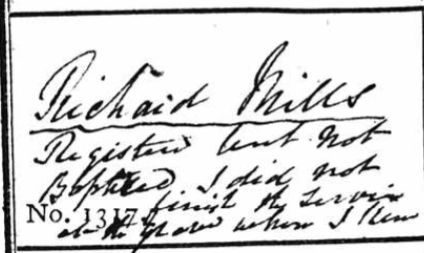 Richard Mills
Registered but not
Baptized I did not
No. 1317. finish the Service
at the grave when I knew